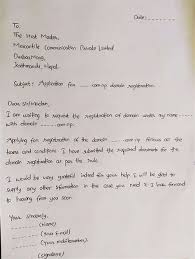 Date: - - - - -
To,
The Host Master,
Mercantile Communication Private Limited
Durbar Marg,
Kathmandu, Nepal.
Subject: Application for - - - .com.np domain registration.
Dear sir/madam,
I am writing to request the registration of domain under my name - - -
with domain - - - .com.np.
Applying for registration of the domain - - - .com.np follows all the
terms and conditions. I have submitted the required documents for the
domain registration as per the rule.
I would be very grateful indeed for your help. I will be glad to
supply any other information in the case you need it. I look forward
to hearing from you soon.
Yours Sincerely,
- - - - - (Name)
- - - - - (Your E-mail)
- - - - - (Your mobile number)
- - - - -
(signature)